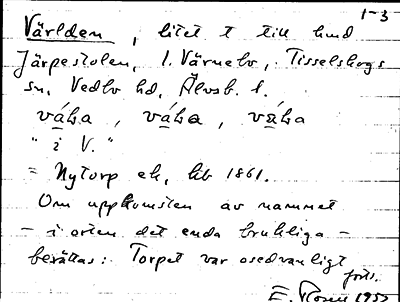 1-3
Världen, litet t till hmd
Järpestolen, l. Värnebo, Tisselskogs
sn, Vedbo hd, Älvsb. l.
váha, váha, váha
" i V. "
= Nytorp ek, kb 1861.
Om uppkomsten av namnet
- i orten det enda brukliga -
berättas: Torpet var osedvanligt
forts.
E. Rosen 1932